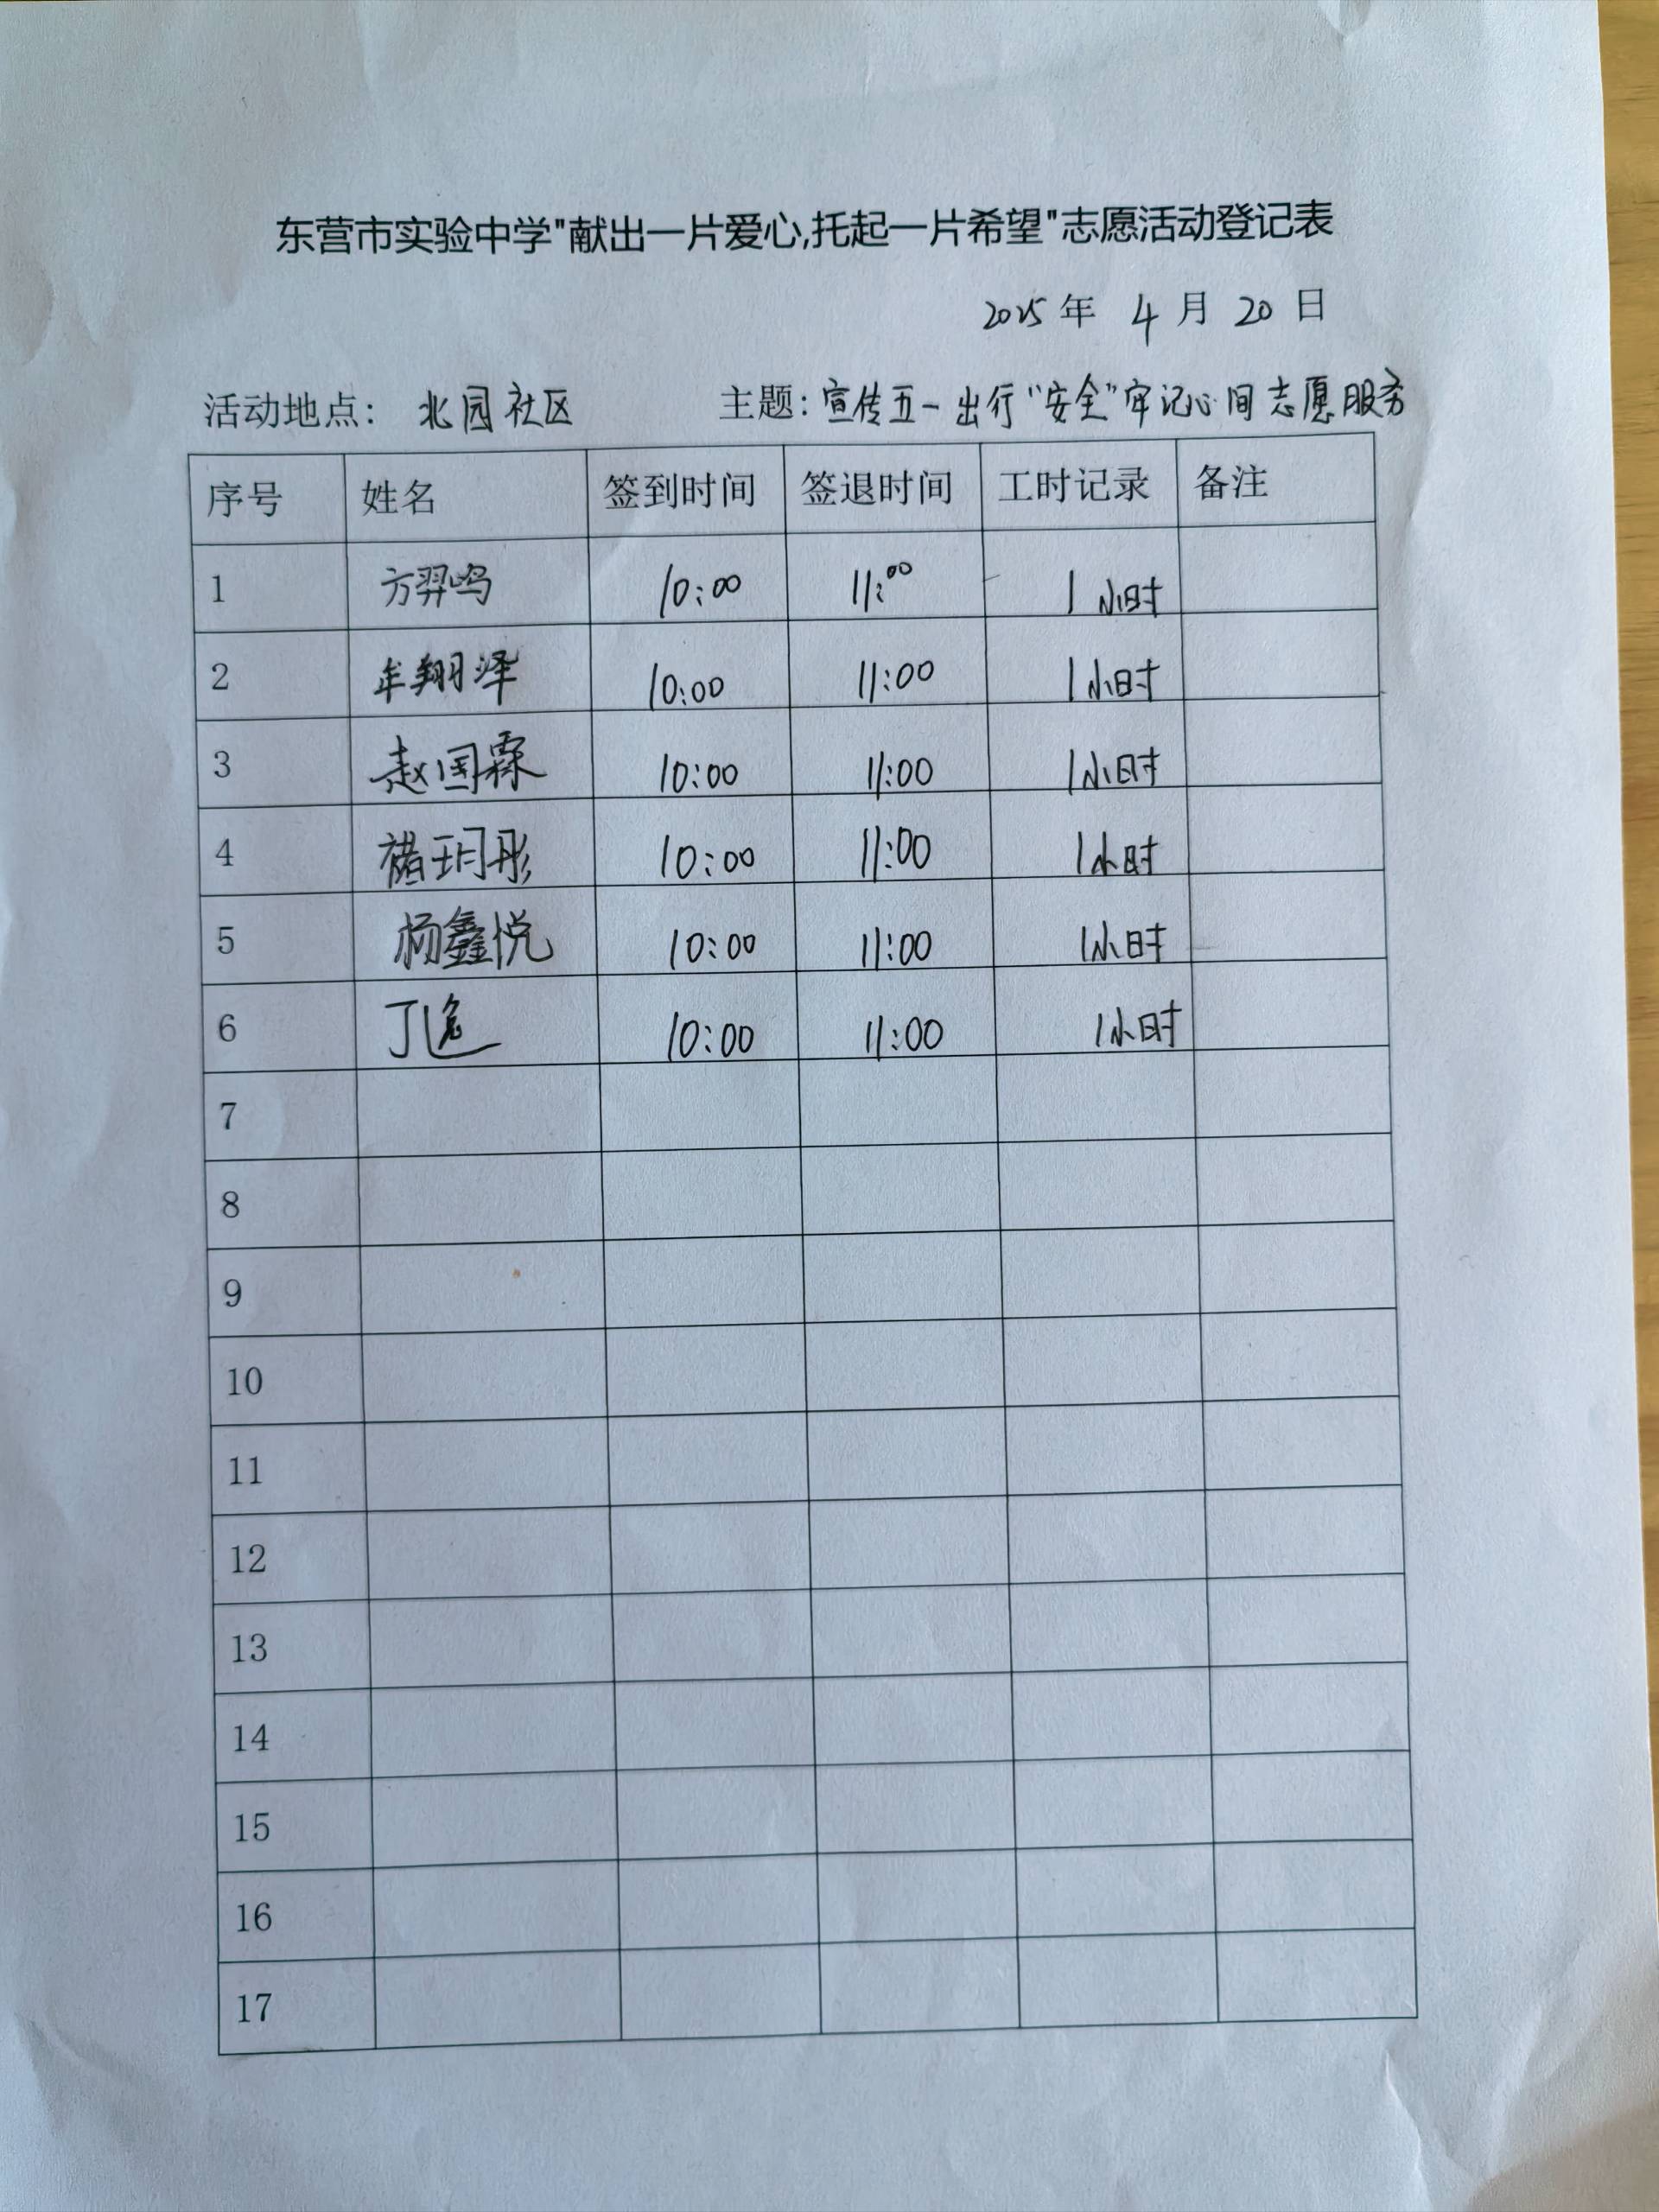 东营市实验中学"献出一片爱心,托起一片希望"志愿活动登记表
2025 年 4 月 20 日
活动地点： 北园社区 主题：宣传五一出行“安全”牢记心间志愿服务
序号 姓名 签到时间 签退时间 工时记录 备注
1 方羿鸣 10:00 11:00 1小时
2 牟翔泽 10:00 11:00 1小时
3 赵国霖 10:00 11:00 1小时
4 褚玥彤 10:00 11:00 1小时
5 杨鑫悦 10:00 11:00 1小时
6 丁 10:00 11:00 1小时
7
8
9
10
11
12
13
14
15
16
17